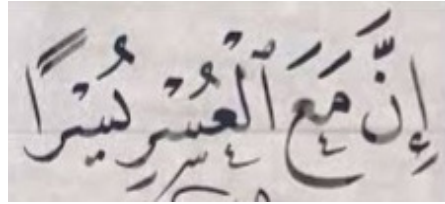 إِنَّ مَعَ ٱلْعُسْرِ يُسْرًا